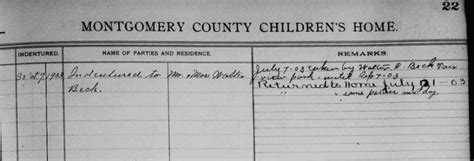 22
MONTGOMERY COUNTY CHILDREN'S HOME.
INDENTURED. NAME OF PARTIES AND RESIDENCE. REMARKS.
1903 Indentured to Mr. Mrs Walter July 7-03 taken by Walter Beck Fair
Beck. view park until Sep 7-03
Returned to Home July 21 03
some parties day